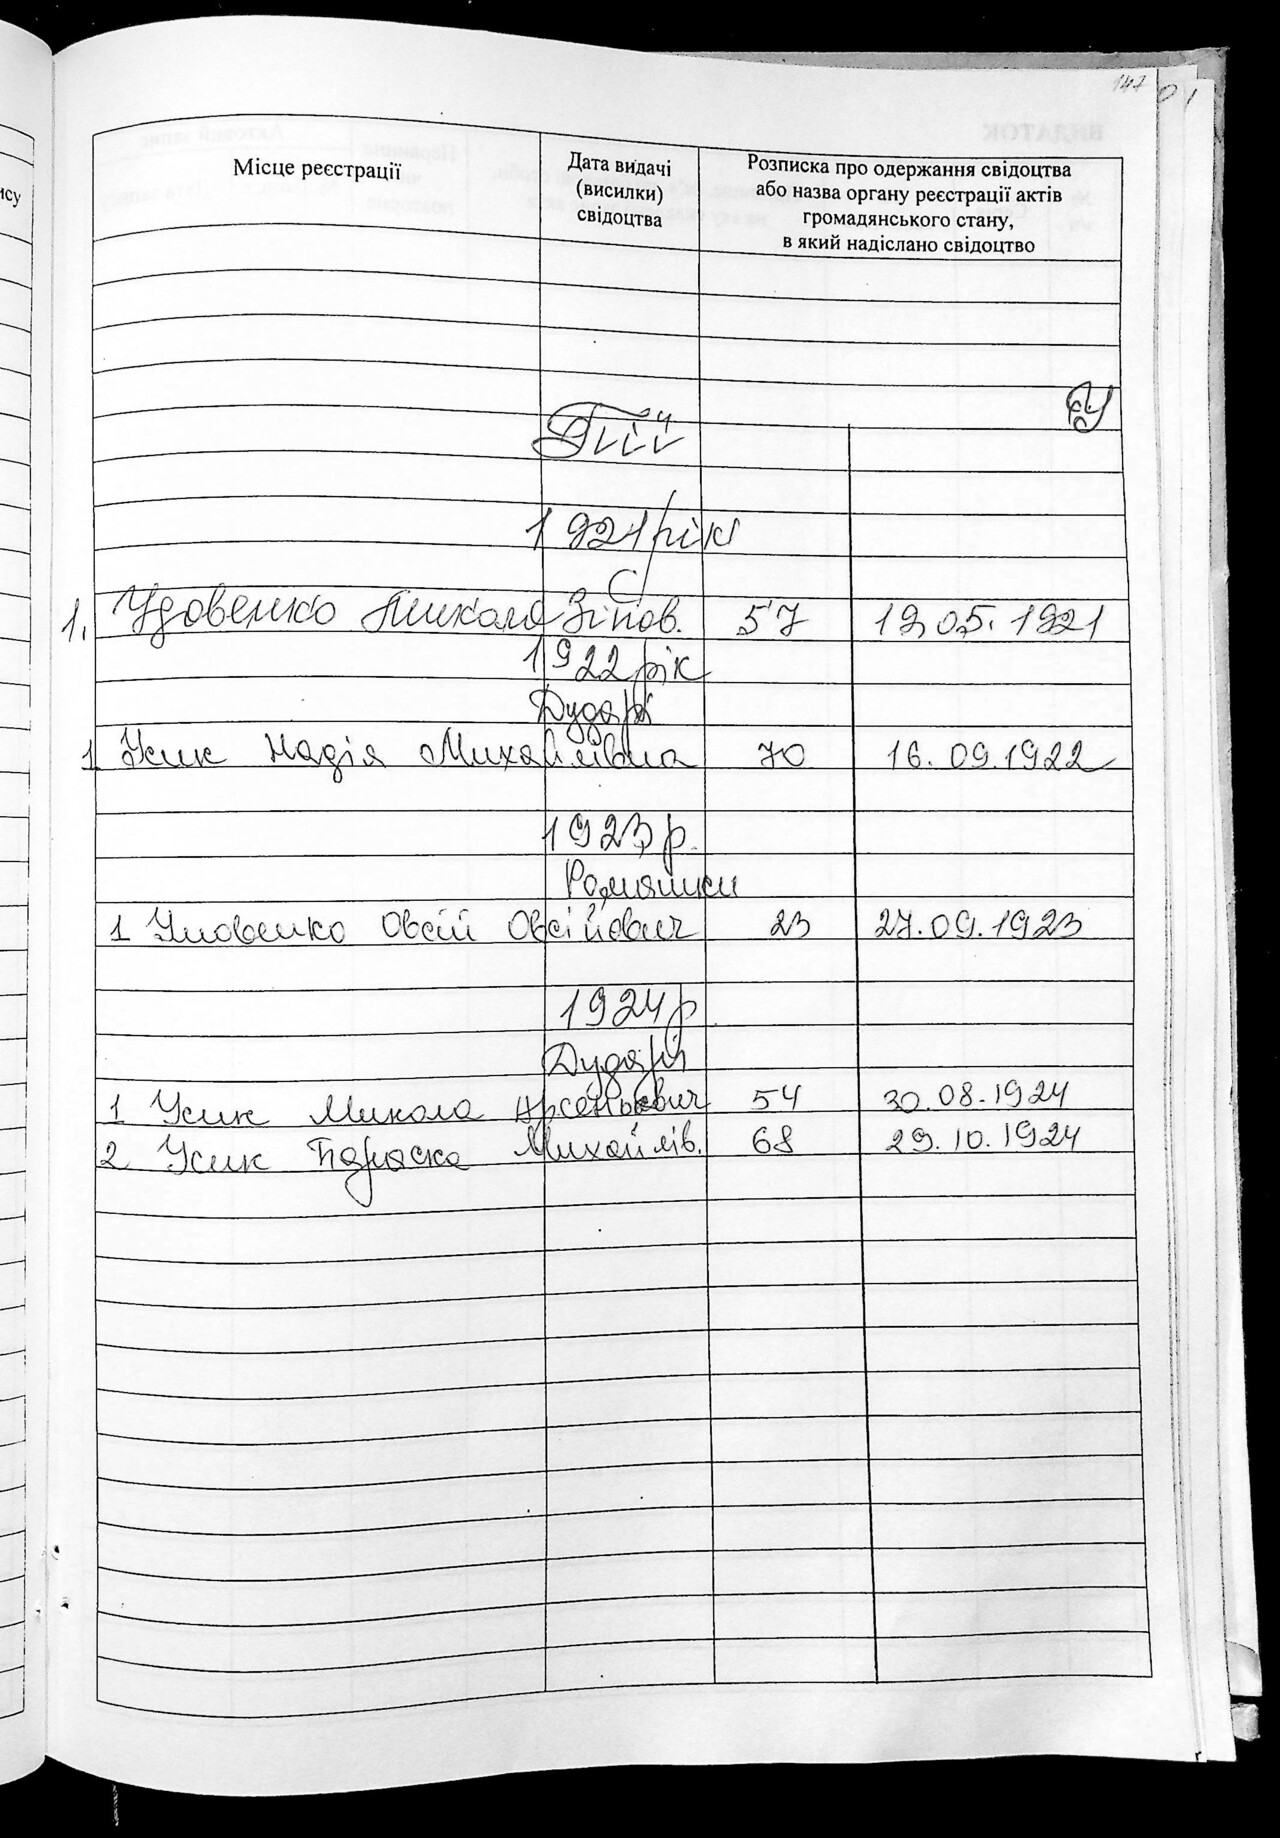 147
Місце реєстрації
Дата видачі
(висилки)
свідоцтва
Розписка про одержання свідоцтва
або назва органу реєстрації актів
громадянського стану,
в який надіслано свідоцтво
У
1921 рік
1. Удовенко Микола Зінов. 57 19.05.1921
1922 рік
Дударі
1 Усик Надія Михайлівна 70 16.09.1922
1923 р.
Ромашки
1 Уловенко Овсій Овсійович 23 27.09.1923
1924 р
Дударі
1 Усик Микола Арсенькович 54 30.08.1924
2 Усик Параска Михайлів. 68 29.10.1924